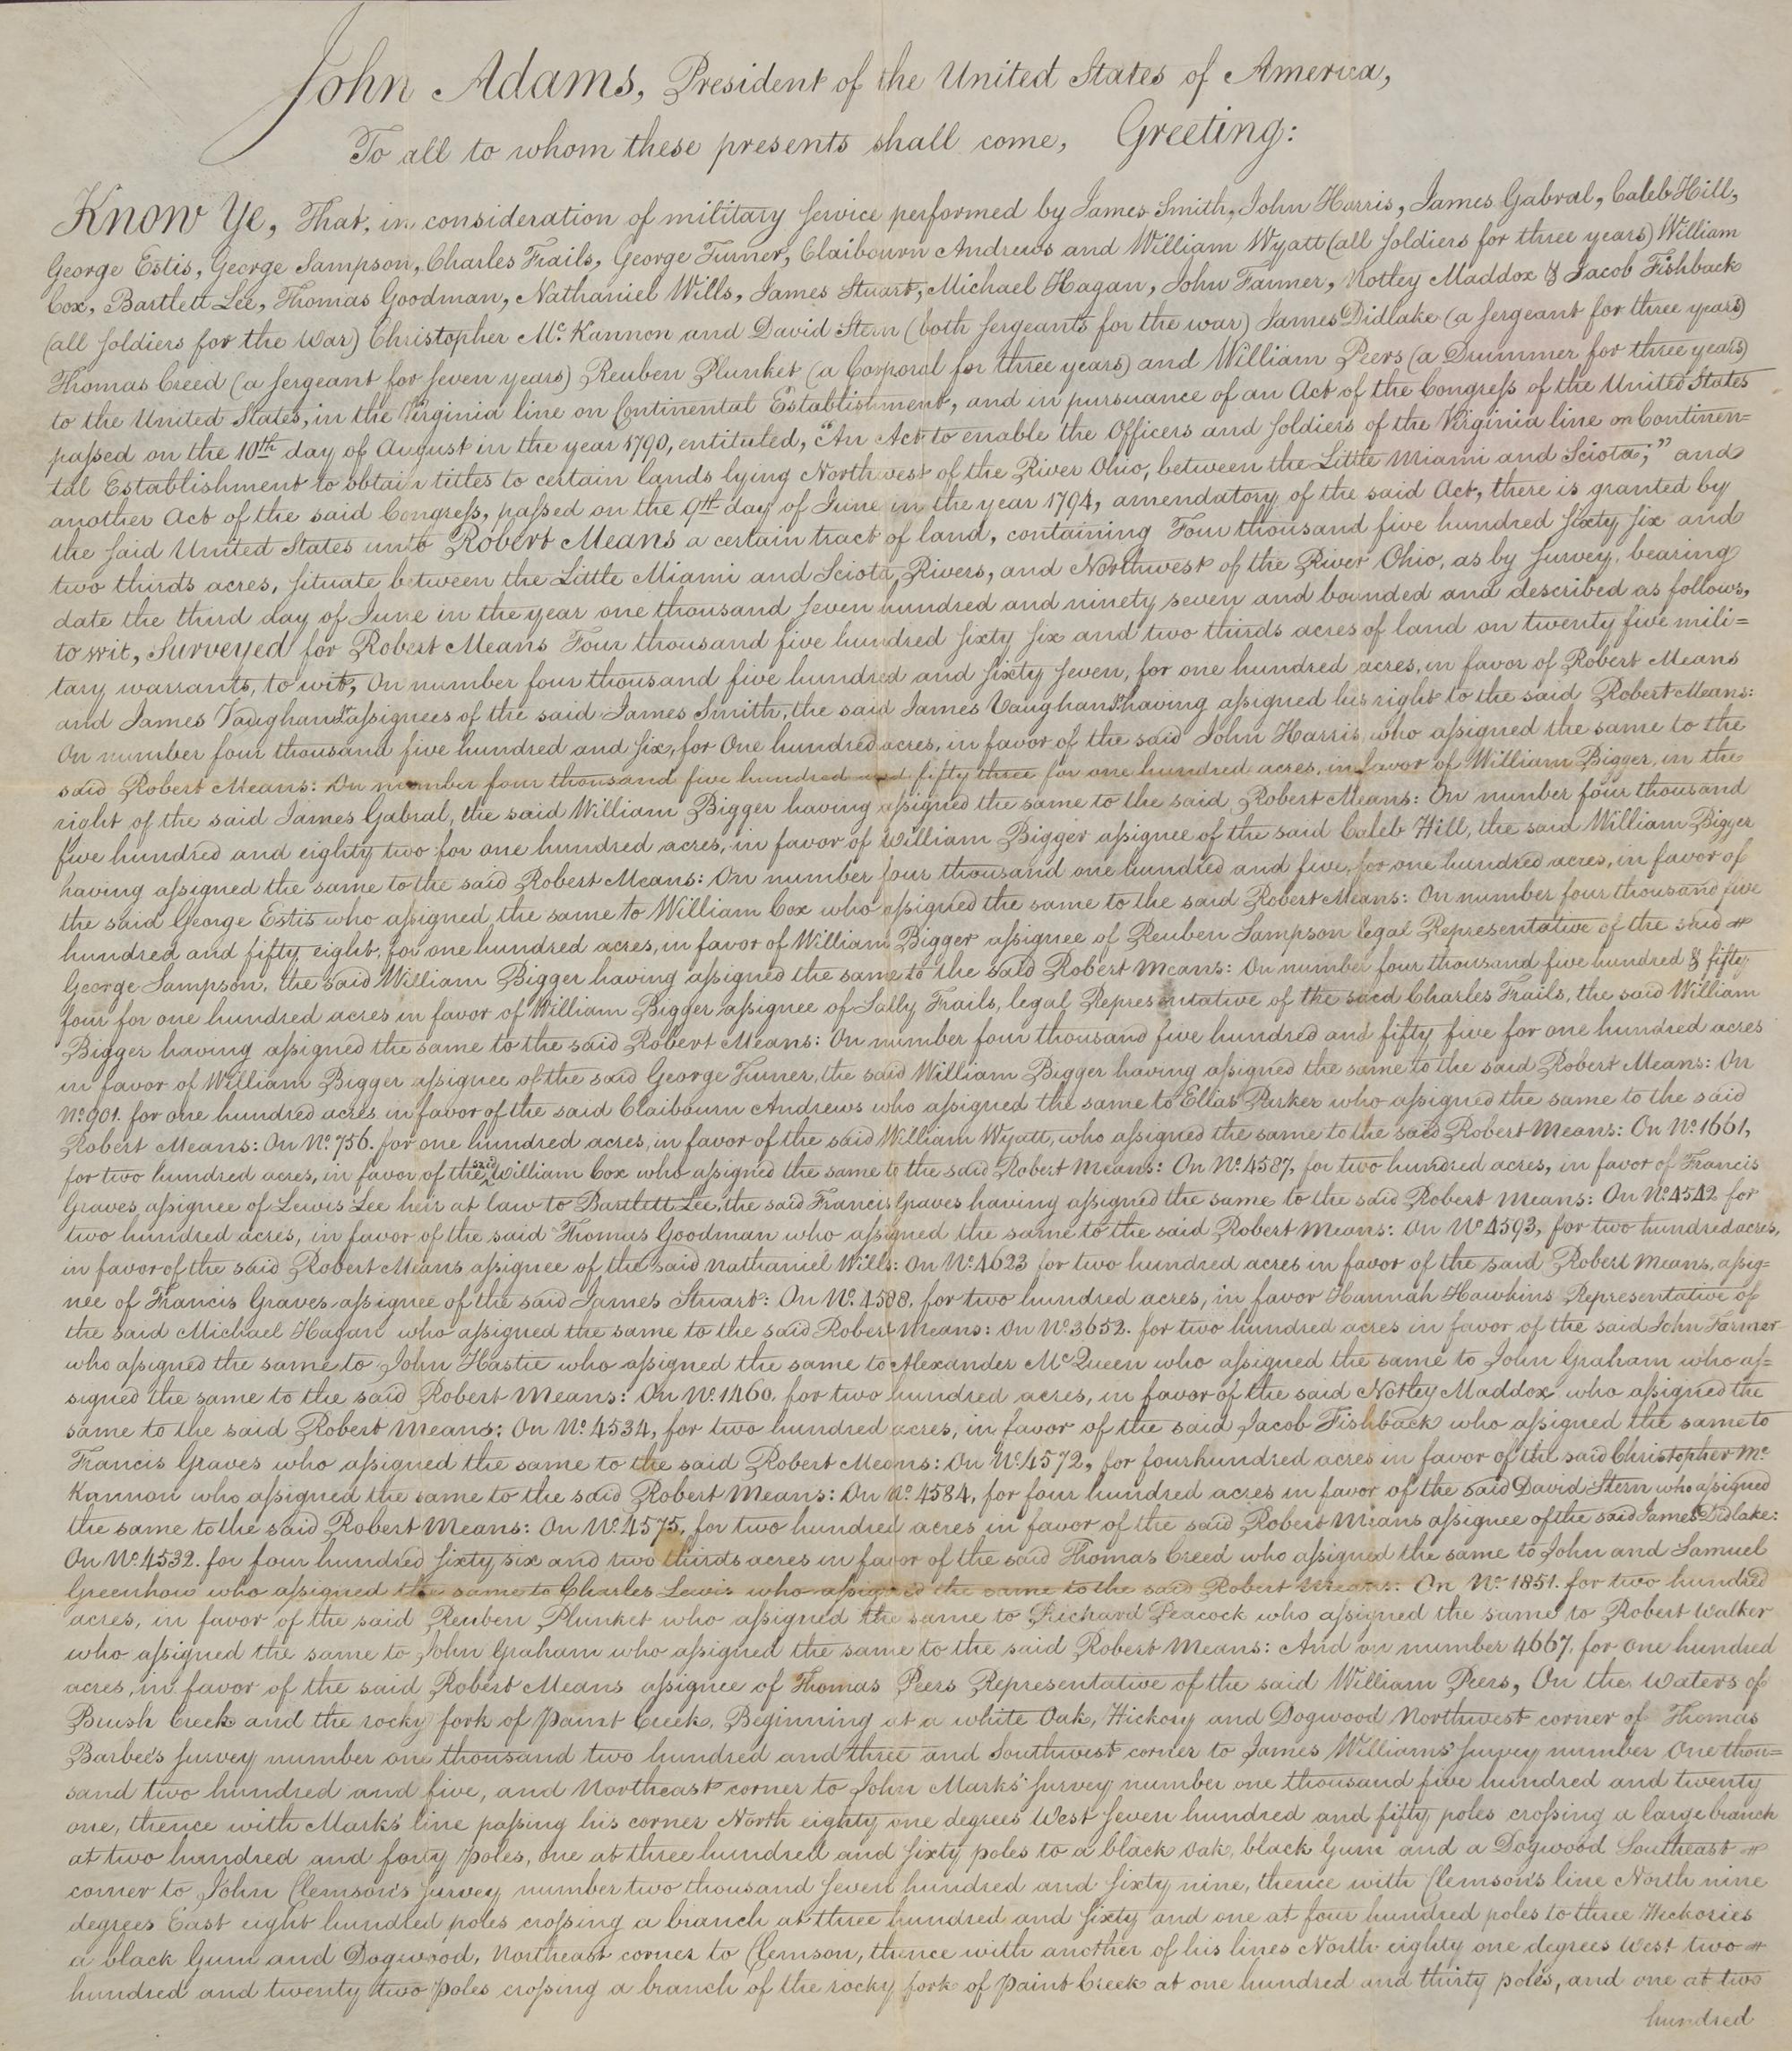 John Adams, President of the United States of America,
To all to whom these presents shall come, Greeting:
Know Ye, That, in consideration of military service performed by James Smith, John Harris, James Gabral, Caleb Hill,
George Estis, George Sampson, Charles Frails, George Turner, Claibourn Andrews and William Wyatt (all soldiers for three years) William
Cox, Bartlett Lee, Thomas Goodman, Nathaniel Wills, James Stuart, Michael Hagan, John Farmer, Notley Maddox & Jacob Fishback
(all soldiers for the war) Christopher Mc. Kannon and David Stern (both sergeants for the war) James Didlake (a sergeant for three years)
Thomas Creed (a sergeant for seven years) Reuben Plunket (a Corporal for three years) and William Peers (a Drummer for three years)
to the United States, in the Virginia line on Continental Establishment, and in pursuance of an Act of the Congress of the United States
passed on the 10th day of August in the year 1790, entituled, "An Act to enable the Officers and soldiers of the Virginia line on Continen=
tal Establishment to obtain titles to certain lands lying Northwest of the River Ohio, between the Little Miami and Sciota;" and
another Act of the said Congress, passed on the 9th day of June in the year 1794, amendatory of the said Act, there is granted by
the said United States unto Robert Means a certain tract of land, containing Four thousand five hundred sixty six and
two thirds acres, situate between the Little Miami and Sciota Rivers, and Northwest of the River Ohio, as by survey, bearing
date the third day of June in the year one thousand seven hundred and ninety seven and bounded and described as follows,
to wit, Surveyed for Robert Means Four thousand five hundred sixty six and two thirds acres of land on twenty five mili=
tary warrants, to wit, On number four thousand five hundred and sixty seven, for one hundred acres, in favor of Robert Means
and James Vaughan assignees of the said James Smith, the said James Vaughan having assigned his right to the said Robert Means:
On number four thousand five hundred and six, for One hundred acres, in favor of the said John Harris who assigned the same to the
said Robert Means: On number four thousand five hundred and fifty three for one hundred acres, in favor of William Bigger, in the
right of the said James Gabral, the said William Bigger having assigned the same to the said Robert Means: On number four thousand
five hundred and eighty two for one hundred acres, in favor of William Bigger assignee of the said Caleb Hill, the said William Bigger
having assigned the same to the said Robert Means: On number four thousand one hundred and five, for one hundred acres, in favor of
the said George Estis who assigned the same to William Cox who assigned the same to the said Robert Means: On number four thousand five
hundred and fifty eight, for one hundred acres, in favor of William Bigger assignee of Reuben Sampson legal Representative of the said
George Sampson, the said William Bigger having assigned the same to the said Robert Means: On number four thousand five hundred & fifty
four for one hundred acres in favor of William Bigger assignee of Sally Frails, legal Representative of the said Charles Frails, the said William
Bigger having assigned the same to the said Robert Means: On number four thousand five hundred and fifty five for one hundred acres
in favor of William Bigger assignee of the said George Turner, the said William Bigger having assigned the same to the said Robert Means: On
No. 901. for one hundred acres in favor of the said Claibourn Andrews who assigned the same to Elias Parker who assigned the same to the said
Robert Means: On No. 756. for one hundred acres, in favor of the said William Wyatt, who assigned the same to the said Robert Means: On No. 1661,
for two hundred acres, in favor of the said William Cox who assigned the same to the said Robert Means: On No. 4587, for two hundred acres, in favor of Francis
Graves, assignee of Lewis Lee heir at law to Bartlett Lee, the said Francis Graves having assigned the same to the said Robert Means: On No. 4542 for
two hundred acres, in favor of the said Thomas Goodman who assigned the same to the said Robert Means: On No 4593, for two hundred acres,
in favor of the said Robert Means assignee of the said Nathaniel Wills: On No. 4623 for two hundred acres in favor of the said Robert Means, assig=
nee of Francis Graves assignee of the said James Stuart: On No. 4588. for two hundred acres, in favor Hannah Hawkins Representative of
the said Michael Hagan who assigned the same to the said Robert Means: On No. 3652. for two hundred acres in favor of the said John Farmer
who assigned the same to John Hastie who assigned the same to Alexander Mc.Queen who assigned the same to John Graham who as=
signed the same to the said Robert Means: On No. 1460. for two hundred acres, in favor of the said Notley Maddox who assigned the
same to the said Robert Means: On No. 4534, for two hundred acres, in favor of the said Jacob Fishback who assigned the same to
Francis Graves who assigned the same to the said Robert Means: On No. 4572, for four hundred acres in favor of the said Christopher Mc.
Kannon who assigned the same to the said Robert Means: On No. 4584, for four hundred acres in favor of the said David Stern who assigned
the same to the said Robert Means: On No. 4575, for two hundred acres in favor of the said Robert Means assignee of the said James Didlake:
On No. 4532. for four hundred sixty six and two thirds acres in favor of the said Thomas Creed who assigned the same to John and Samuel
Greenhow who assigned the same to Charles Lewis who assigned the same to the said Robert Means: On No. 1851. for two hundred
acres, in favor of the said Reuben Plunket who assigned the same to Richard Peacock who assigned the same to Robert Walker
who assigned the same to John Graham who assigned the same to the said Robert Means: And on number 4667. for one hundred
acres, in favor of the said Robert Means assignee of Thomas Peers Representative of the said William Peers, On the waters of
Brush Creek and the rocky fork of Paint Creek, Beginning at a white Oak, Hickory and Dogwood Northwest corner of Thomas
Barbee's survey number one thousand two hundred and three and Southwest corner to James Williams' survey number One thou=
sand two hundred and five, and Northeast corner to John Marks' survey number one thousand five hundred and twenty
one, thence with Mark's line passing his corner North eighty one degrees West seven hundred and fifty poles crossing a large branch
at two hundred and forty poles, one at three hundred and sixty poles to a black oak, black Gum and a Dogwood Southeast
corner to John Clemson's survey number two thousand seven hundred and sixty nine, thence with Clemson's line North nine
degrees East eight hundred poles crossing a branch at three hundred and sixty and one at four hundred poles to three Hickories
a black Gum and Dogwood, Northeast corner to Clemson, thence with another of his lines North eighty one degrees West two
hundred and twenty two poles crossing a branch of the rocky fork of Paint Creek at one hundred and thirty poles, and one at two
hundred